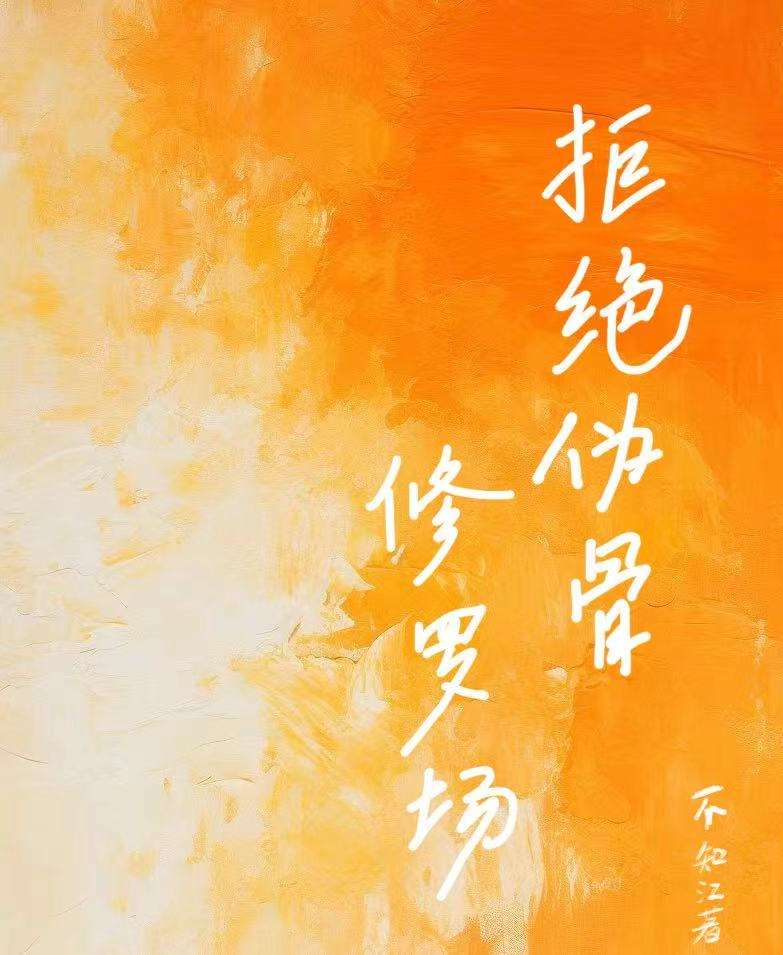 拒绝伪骨
修罗场
不知江著